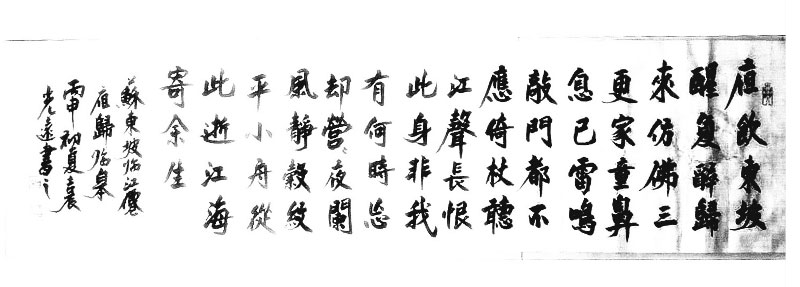 夜飲東坡
醒复醉歸
來仿佛三
更家童鼻
息已雷鳴
敲門都不
應倚杖聽
江聲長恨
此身非我
有何時忘
却營々夜闌
風靜縠紋
平小舟從
此逝江海
寄余生
蘇東坡臨江僊
夜歸臨皋
丙申初夏袁
光遠書之